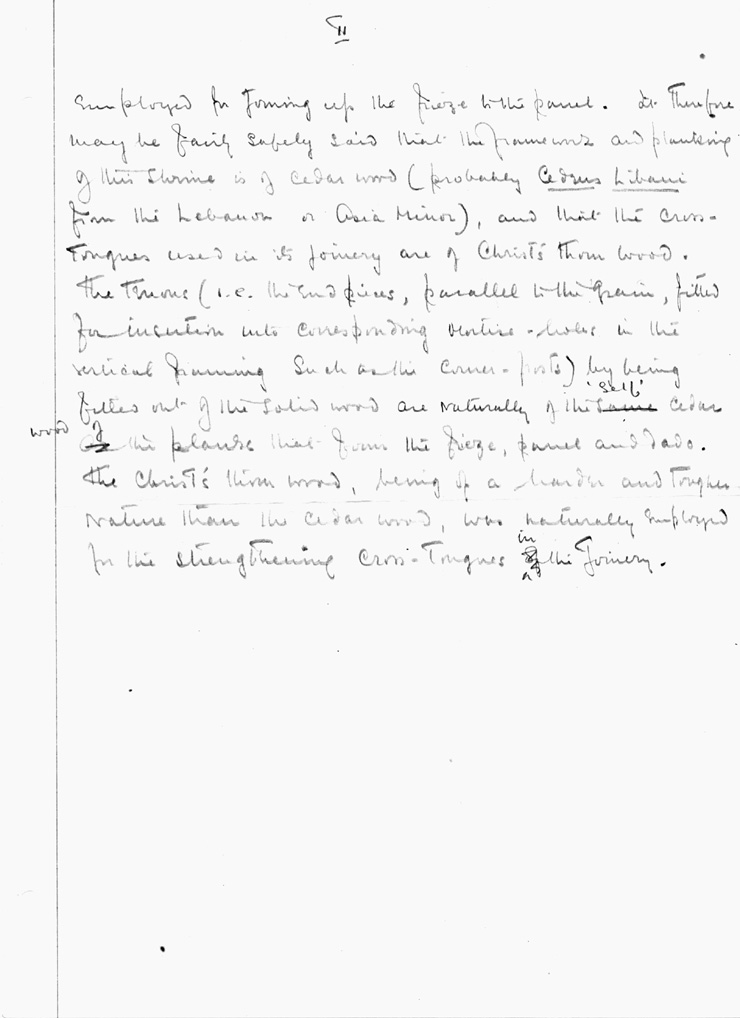 II
Employed for Joining up the frieze to the panel. It Therefore
may be fairly safely said that the framework and planking
of this Shrine is of cedar wood (probably Cedrus Libani
from the Lebanon or Asia Minor), and that the cross-
Tongues used in its Joinery are of Christ's thorn wood.
The Tenons (i.e. the end pieces, parallel to the Grain, fitted
for insertion into corresponding mortise-holes in the
vertical framing such as the corner-posts) by being
'self'
fitted out of the solid wood are naturally of the same cedar
wood of
as the planks that form the frieze, panel and dado.
The Christ's thorn wood, being of a harder and Tougher
Nature than the cedar wood, was naturally Employed
in
for the strengthening cross-Tongues the Joinery.